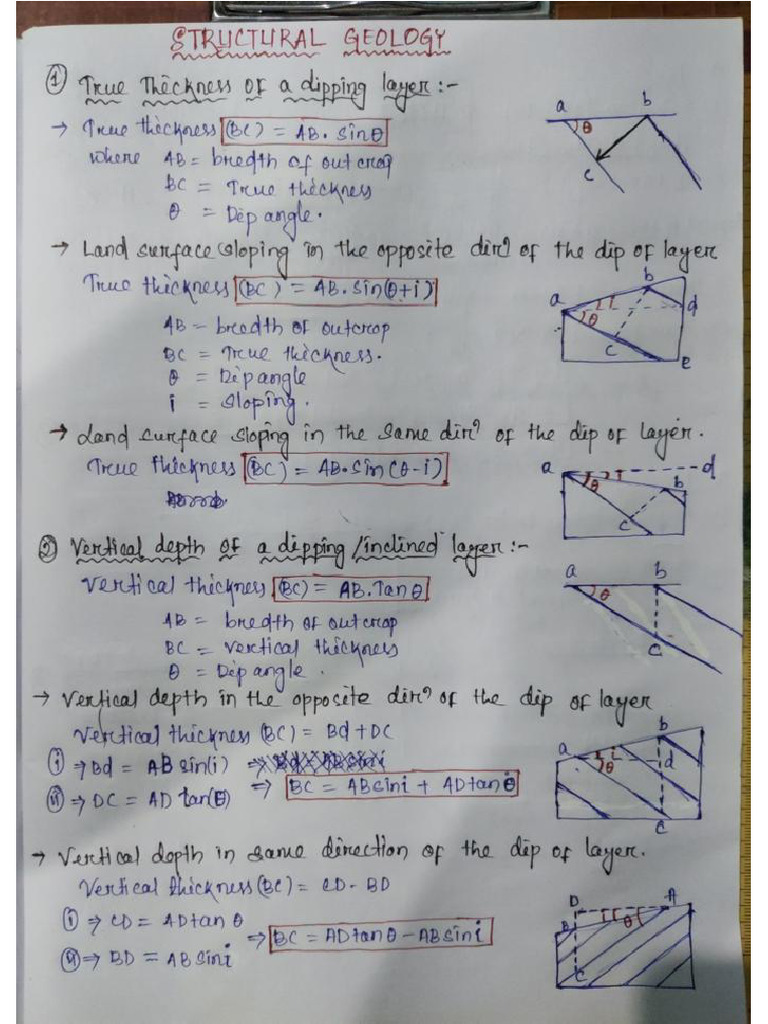 STRUCTURAL GEOLOGY
① True Thickness of a dipping layer:-
→ True thickness (BC) = AB. sinθ
where AB = bredth of outcrop
BC = True thickness
θ = Dip angle.
a b
θ
c
→ Land surface sloping in the opposite dirⁿ of the dip of layer
True thickness (BC) = AB.sin(θ+i)
AB – bredth of outcrop
BC = True thickness.
θ = Dip angle
i = sloping.
a b
i d
θ
c e
→ Land surface sloping in the same dirⁿ of the dip of layer.
True thickness (BC) = AB.sin(θ-i)
a d
θ i b
c
② Vertical depth of a dipping/inclined layer:-
Vertical thickness (BC) = AB.Tanθ
AB = bredth of outcrop
BC = vertical thickness
θ = Dip angle.
a b
θ
c
→ Vertical depth in the opposite dirⁿ of the dip of layer
Vertical thickness (BC) = Bd + DC
ⓘ ⇒ Bd = AB sin(i)
ⓘⓘ ⇒ DC = AD tan(θ) ⇒ BC = ABsini + ADtanθ
a b
i d
θ
c
→ Vertical depth in same direction of the dip of layer.
Vertical thickness (BC) = CD - BD
ⓘ ⇒ CD = ADtanθ
ⓘⓘ ⇒ BD = ABsini ⇒ BC = ADtanθ - ABsini
D A
B i θ
C